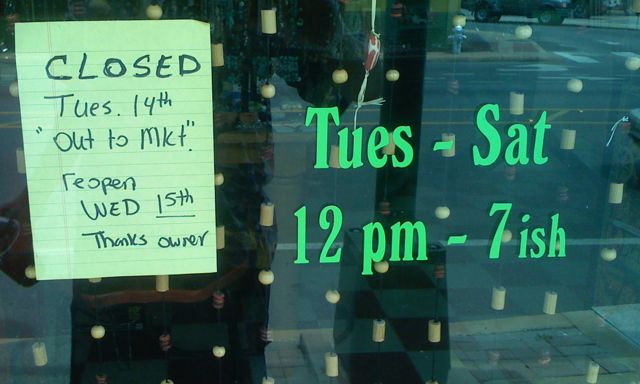 CLOSED
Tues. 14th
"Out to Mkt".
reopen
WED 15th
Thanks owner
Tues - Sat
12 pm - 7ish